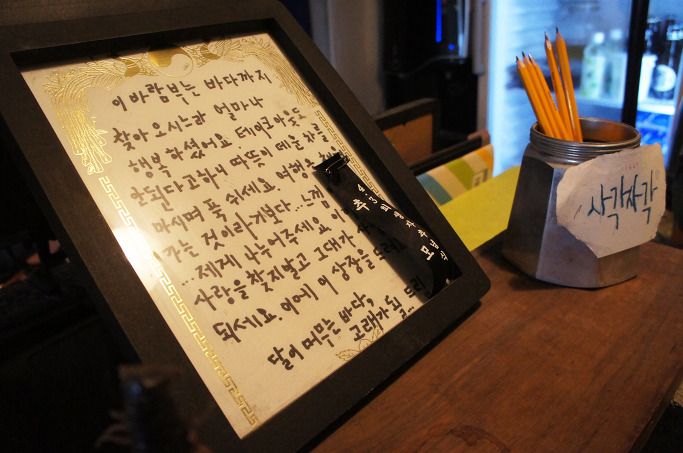 이 바람부는 바다까지
찾아 오시느라 얼마나
행복 하셨어요 테이크아웃도
안된다고하니 따뜻이 데운 차를
마시며 푹 쉬세요. 여행
가는 것이라기보다...느낌
...제게 나누어주세요.
사랑을 찾지말고 그대가
되세요. 이에 이 상장을 드려
달이 머무는 바다,
고래가 될
4.3
추
모
사각사각